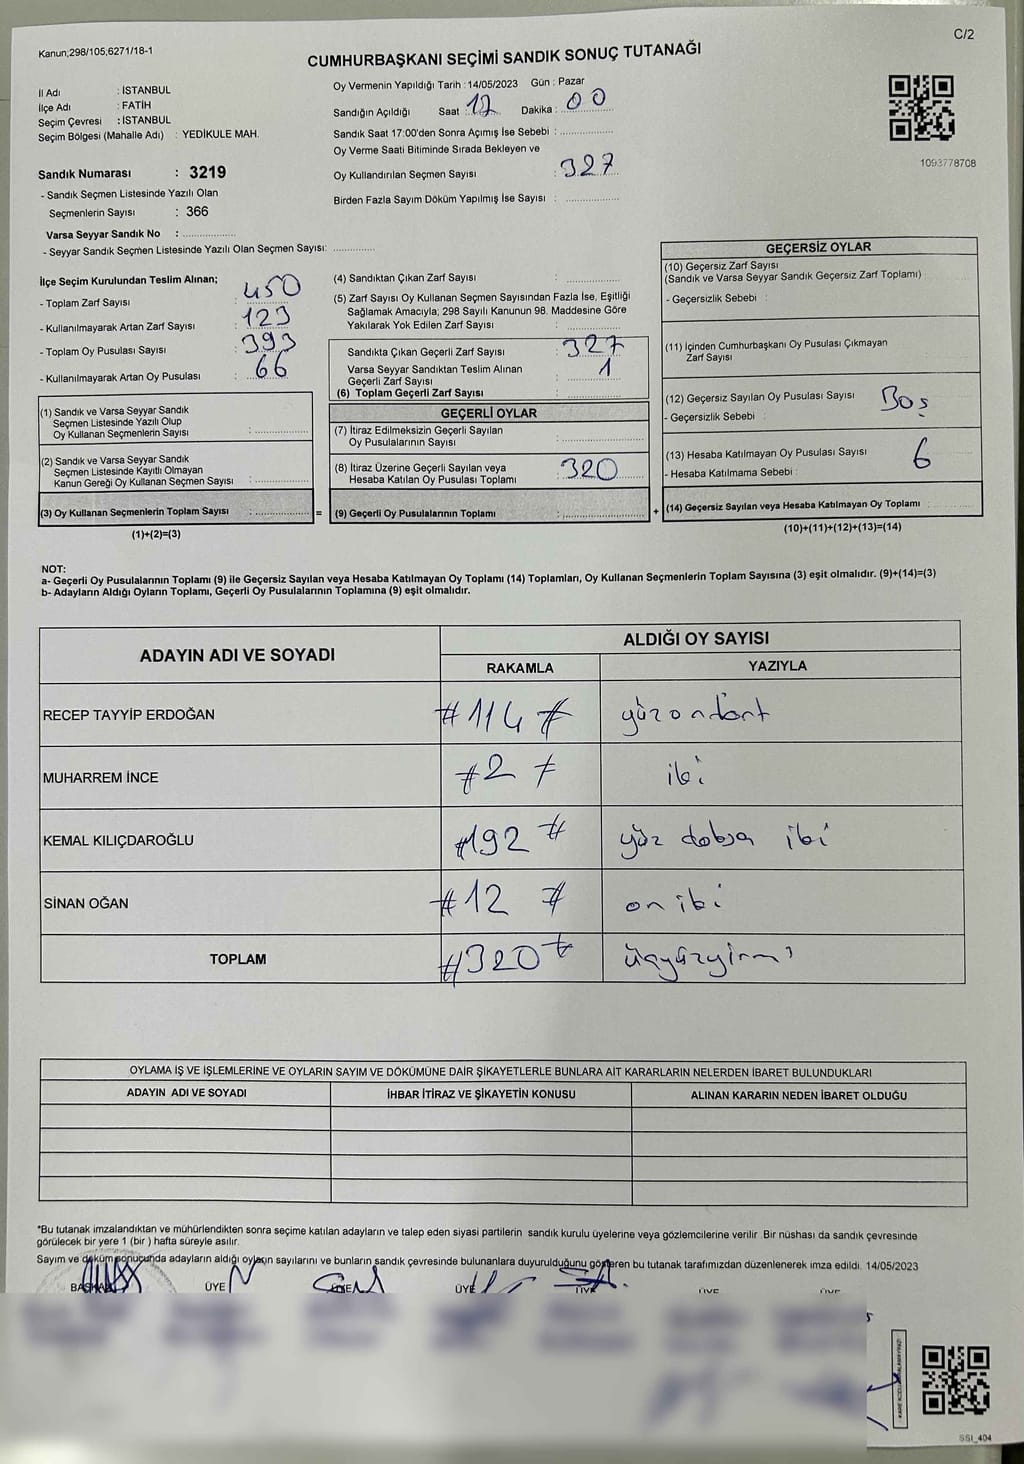 Kanun;298/105,6271/18-1
C/2
CUMHURBAŞKANI SEÇİMİ SANDIK SONUÇ TUTANAĞI
İl Adı : İSTANBUL
İlçe Adı : FATİH
Seçim Çevresi : İSTANBUL
Seçim Bölgesi (Mahalle Adı) : YEDİKULE MAH.
Sandık Numarası : 3219
- Sandık Seçmen Listesinde Yazılı Olan
Seçmenlerin Sayısı : 366
Varsa Seyyar Sandık No :
- Seyyar Sandık Seçmen Listesinde Yazılı Olan Seçmen Sayısı:
Oy Vermenin Yapıldığı Tarih : 14/05/2023 Gün : Pazar
Sandığın Açıldığı Saat : 17 Dakika : 00
Sandık Saat 17:00'den Sonra Açımış İse Sebebi :
Oy Verme Saati Bitiminde Sırada Bekleyen ve
Oy Kullandırılan Seçmen Sayısı : 327
Birden Fazla Sayım Döküm Yapılmış İse Sayısı :
1093778708
İlçe Seçim Kurulundan Teslim Alınan;
- Toplam Zarf Sayısı : 450
- Kullanılmayarak Artan Zarf Sayısı : 123
- Toplam Oy Pusulası Sayısı : 393
- Kullanılmayarak Artan Oy Pusulası : 66
(1) Sandık ve Varsa Seyyar Sandık
Seçmen Listesinde Yazılı Olup
Oy Kullanan Seçmenlerin Sayısı :
(2) Sandık ve Varsa Seyyar Sandık
Seçmen Listesinde Kayıtlı Olmayan
Kanun Gereği Oy Kullanan Seçmen Sayısı :
(3) Oy Kullanan Seçmenlerin Toplam Sayısı : =
(1)+(2)=(3)
(4) Sandıktan Çıkan Zarf Sayısı :
(5) Zarf Sayısı Oy Kullanan Seçmen Sayısından Fazla İse, Eşitliği
Sağlamak Amacıyla; 298 Sayılı Kanunun 98. Maddesine Göre
Yakılarak Yok Edilen Zarf Sayısı :
Sandıkta Çıkan Geçerli Zarf Sayısı : 327
Varsa Seyyar Sandıktan Teslim Alınan
Geçerli Zarf Sayısı : 1
(6) Toplam Geçerli Zarf Sayısı :
GEÇERLİ OYLAR
(7) İtiraz Edilmeksizin Geçerli Sayılan
Oy Pusulalarının Sayısı :
(8) İtiraz Üzerine Geçerli Sayılan veya
Hesaba Katılan Oy Pusulası Toplamı : 320
(9) Geçerli Oy Pusulalarının Toplamı : +
GEÇERSİZ OYLAR
(10) Geçersiz Zarf Sayısı
(Sandık ve Varsa Seyyar Sandık Geçersiz Zarf Toplamı) :
- Geçersizlik Sebebi :
(11) İçinden Cumhurbaşkanı Oy Pusulası Çıkmayan
Zarf Sayısı
(12) Geçersiz Sayılan Oy Pusulası Sayısı : Boş
- Geçersizlik Sebebi :
(13) Hesaba Katılmayan Oy Pusulası Sayısı : 6
- Hesaba Katılmama Sebebi :
(14) Geçersiz Sayılan veya Hesaba Katılmayan Oy Toplamı
(10)+(11)+(12)+(13)=(14)
NOT:
a- Geçerli Oy Pusulalarının Toplamı (9) ile Geçersiz Sayılan veya Hesaba Katılmayan Oy Toplamı (14) Toplamları, Oy Kullanan Seçmenlerin Toplam Sayısına (3) eşit olmalıdır. (9)+(14)=(3)
b- Adayların Aldığı Oyların Toplamı, Geçerli Oy Pusulalarının Toplamına (9) eşit olmalıdır.
ADAYIN ADI VE SOYADI
ALDIĞI OY SAYISI
RAKAMLA YAZIYLA
RECEP TAYYİP ERDOĞAN #114# yüzondört
MUHARREM İNCE #2# iki
KEMAL KILIÇDAROĞLU #192# yüz doksa iki
SİNAN OĞAN #12# oniki
TOPLAM #320# üçyüzyirmi
OYLAMA İŞ VE İŞLEMLERİNE VE OYLARIN SAYIM VE DÖKÜMÜNE DAİR ŞİKAYETLERLE BUNLARA AİT KARARLARIN NELERDEN İBARET BULUNDUKLARI
ADAYIN ADI VE SOYADI İHBAR İTİRAZ VE ŞİKAYETİN KONUSU ALINAN KARARIN NEDEN İBARET OLDUĞU
*Bu tutanak imzalandıktan ve mühürlendikten sonra seçime katılan adayların ve talep eden siyasi partilerin sandık kurulu üyelerine veya gözlemcilerine verilir .Bir nüshası da sandık çevresinde
görülecek bir yere 1 (bir ) hafta süreyle asılır.
Sayım ve döküm sonucunda adayların aldığı oyların sayılarını ve bunların sandık çevresinde bulunanlara duyurulduğunu gösteren bu tutanak tarafımızdan düzenlenerek imza edildi. 14/05/2023
BAŞKAN ÜYE ÜYE ÜYE ÜYE ÜYE ÜYE
SSI_404